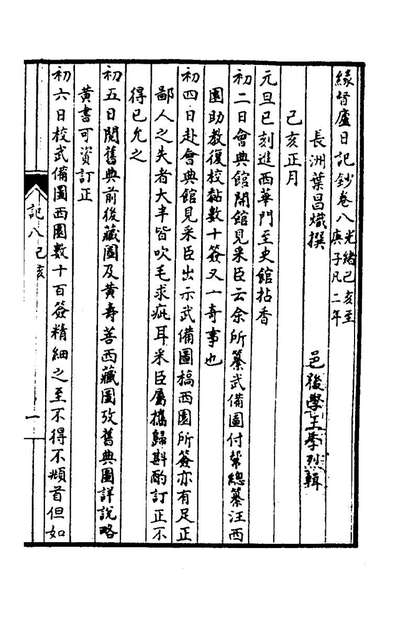 緣督廬日記鈔卷八光緒己亥至庚子凡二年
長洲葉昌熾撰
邑後學王季烈輯
己亥正月
元旦巳刻進西華門至史館拈香
初二日會典館開館見采臣云余所纂武備圖付幫總纂汪西
園助教復校黏數十簽又一奇事也
初四日赴會典館見采臣出示武備圖槁西園所簽亦有足正
鄙人之失者大半皆吹毛求疵耳采臣屬攜歸斟酌訂正不
得已允之
初五日閱舊典前後藏圖及黃壽菩西藏圖攷舊典圖詳說略
黃書可資訂正
初六日校武備圖西園數十百簽精細之至不得不頫首但如
記八己亥
一